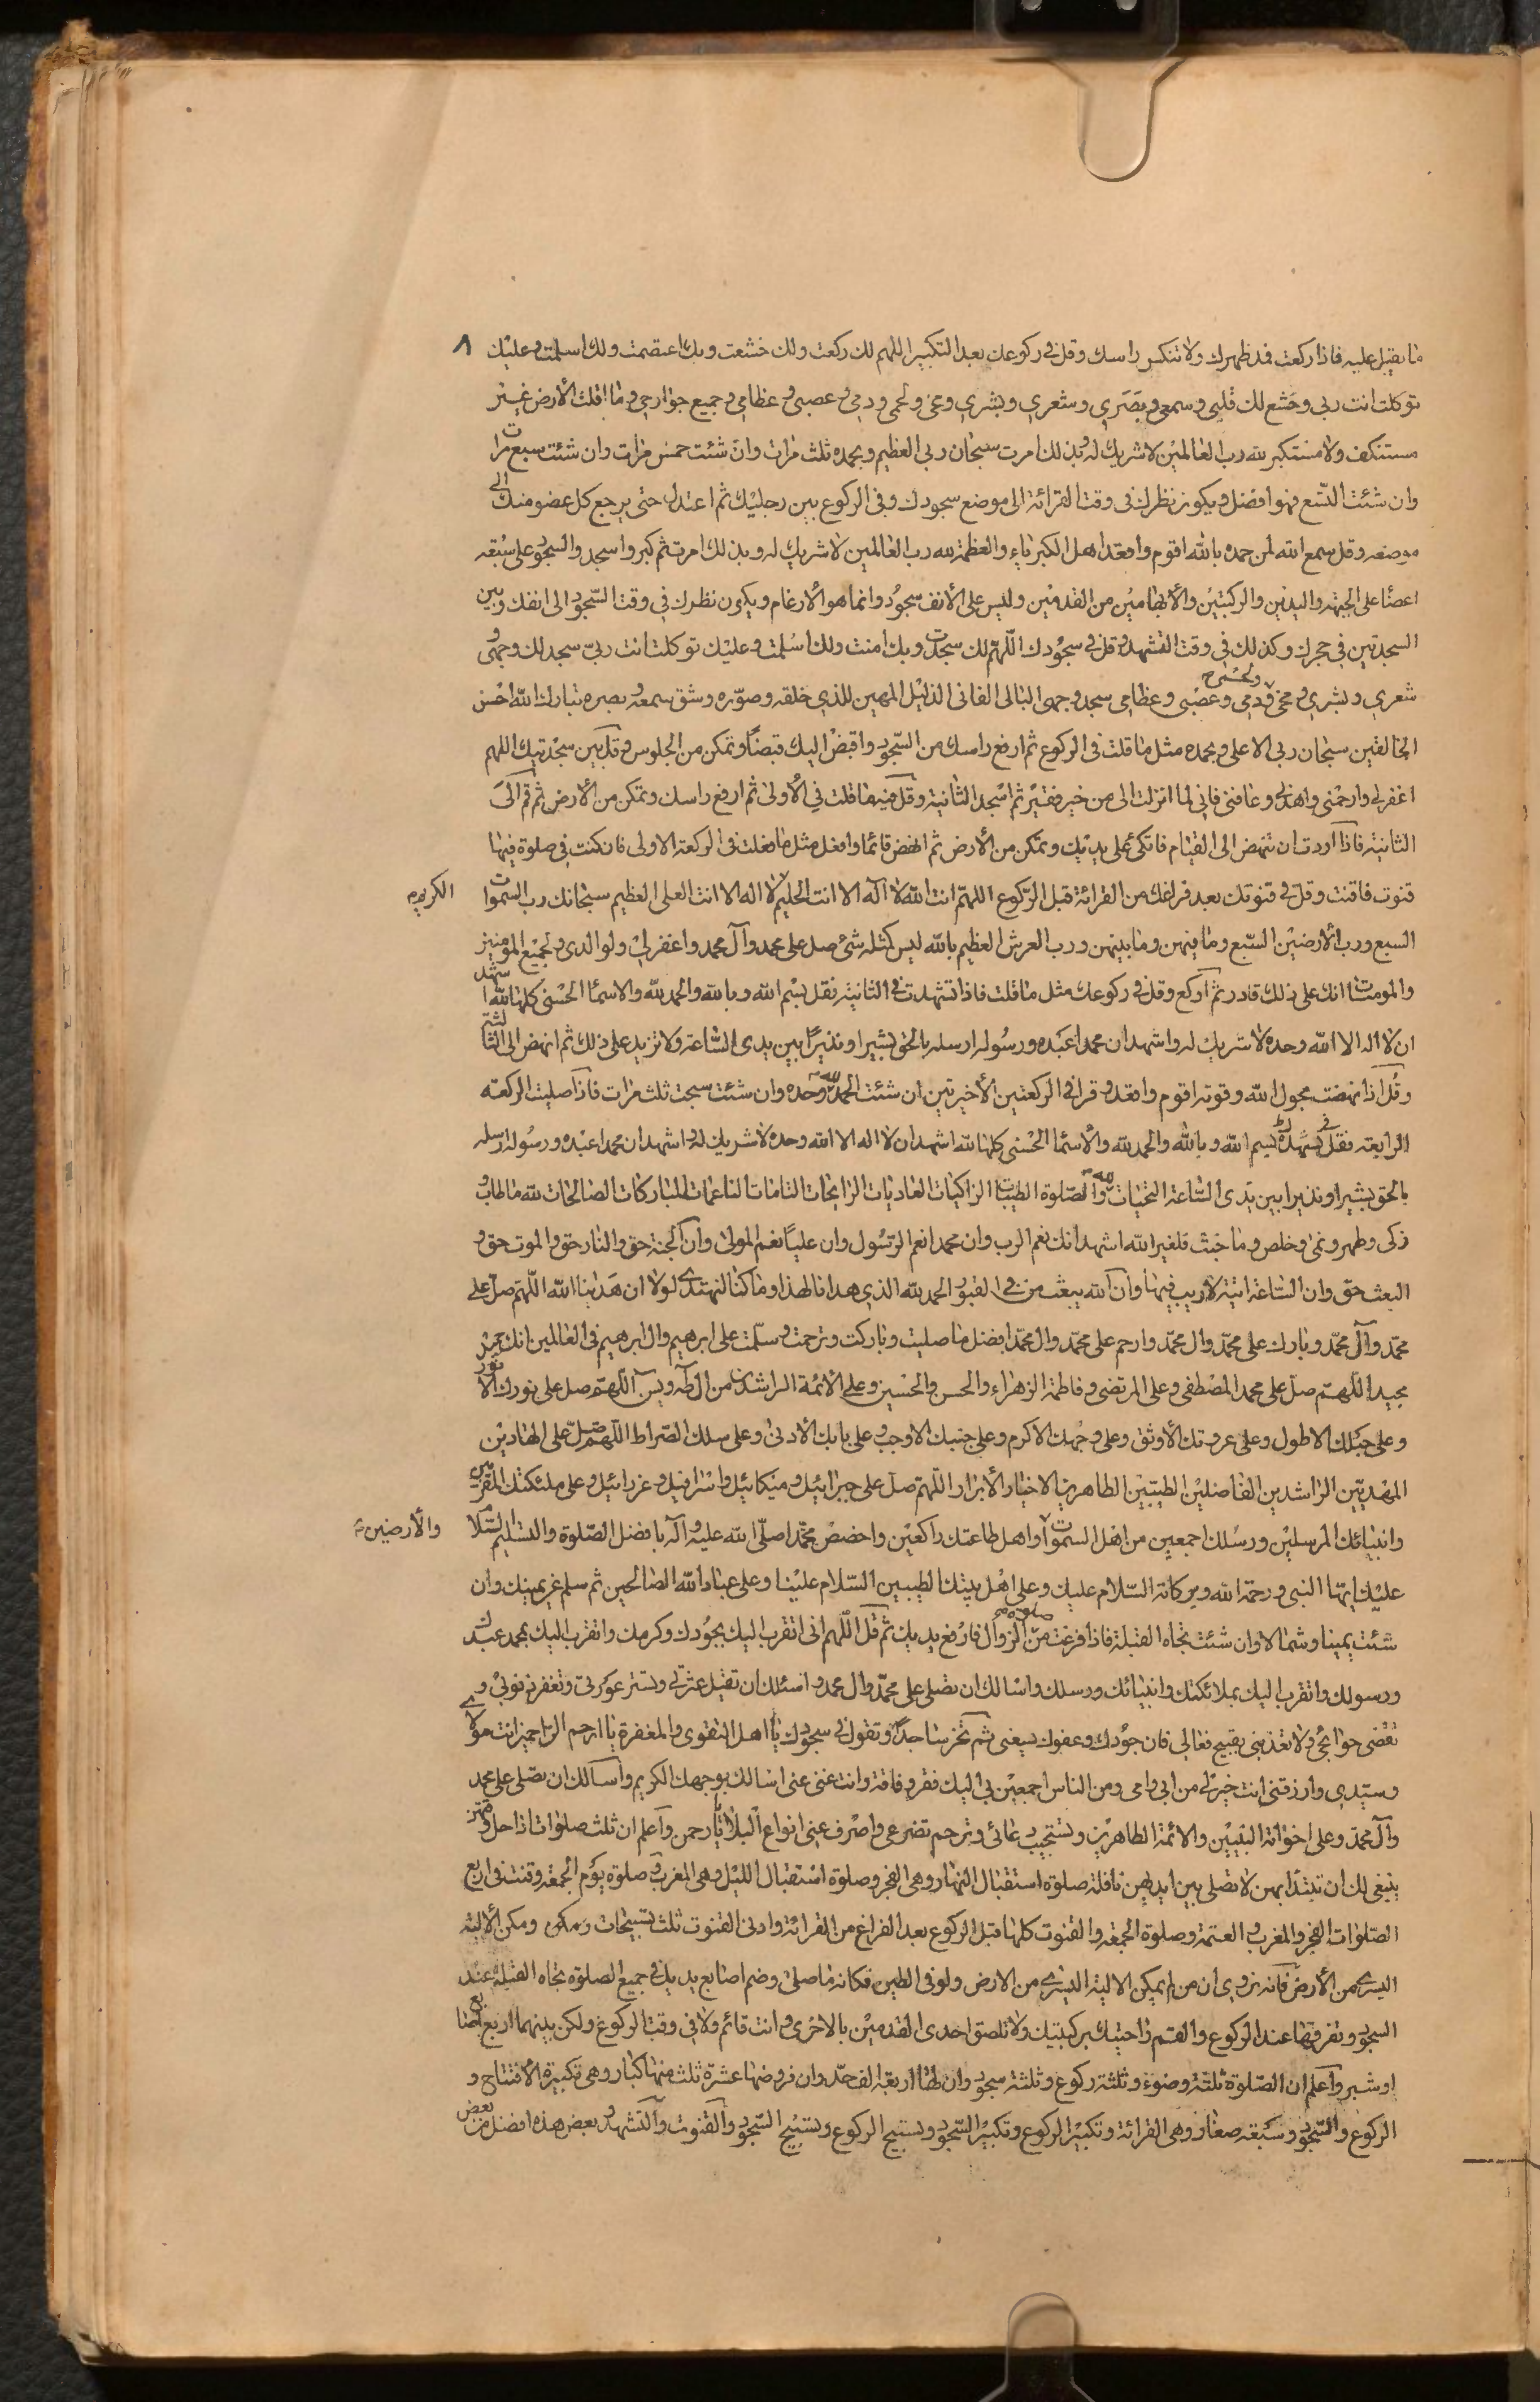 ما يقبل عليه فاذا ركعت فمد ظهرك ولا تنكس راسك وقل فى ركوعك بعد التكبير اللهم لك ركعت ولك خشعت وبك اعتصمت ولك اسلمت وعليك ٨
توكلت انت ربى وخشع لك قلبى وسمعى وبصرى وشعرى وبشرى ومخى ولحمى ودمى وعصبى وعظامى وجميع جوارحى وما اقلت الأرض غير
مستنكف ولا مستكبر لله رب العالمين لا شريك له وبذلك امرت سبحان ربى العظيم وبحمده ثلث مرات وان شئت خمس مرات وان شئت سبع مرات
وان شئت التسع فهو افضل ويكون نظرك فى وقت القرائة الى موضع سجودك وفى الركوع بين رجليك ثم اعتدل حتى يرجع كل عضو منك الى
موضعه وقل سمع الله لمن حمده بالله اقوم واقعد اهل الكبرياء والعظمة لله رب العالمين لا شريك له وبذلك امرت ثم كبر واسجد والسجود على سبعه
اعضا على الجبهه واليدين والركبتين والأبهامين من القدمين وليس على الأنف سجود وانما هو الأرغام ويكون نظرك فى وقت السجود الى انفك وبين
السجدتين فى حجرك وكذلك فى وقت التشهد وقل فى سجودك اللهم لك سجدت وبك امنت ولك اسلمت وعليك توكلت انت ربى سجد لك وجهى و
شعرى وبشرى ومخى ولحمى ودمى وعصبى وعظامى سجد وجهى البالى الفانى الذليل المهين للذى خلقه وصوره وشق سمعه وبصره تبارك الله احسن
الخالقين سبحان ربى الاعلى وبحمده مثل ما قلت فى الركوع ثم ارفع راسك من السجود واقبض اليك قبضا وتمكن من الجلوس وقل بين سجدتيك اللهم
اغفر لى وارحمنى واهدنى وعافنى فانى لما انزلت الى من خير فقير ثم اسجد الثانية وقل فيه ما قلت فى الأولى ثم ارفع راسك وتمكن من الأرض ثم قم الى
الثانيه فاذا اردت ان تنهض الى القيام فاتكئ على يديك وتمكن من الأرض ثم انهض قائما وافعل مثل ما فعلت فى الركعة الاولى فان كنت فى صلوة فيها
قنوت فاقنت وقل فى قنوتك بعد فراغك من القرائة قبل الركوع اللهم انت الله لا اله الا انت الحليم لا اله الا انت العلى العظيم سبحانك رب السموات الكريم
السبع ورب الأرضين السبع وما فيهن وما بينهن ورب العرش العظيم بالله ليس كمثله شئ صل على محمد وآل محمد واغفر لى ولوالدى ولجميع المؤمنين
والمومنات انك على ذلك قادر ثم اركع وقل فى ركوعك مثل ما قلت فاذا تشهدت فى الثانية فقل بسم الله وبالله والحمد لله والاسما الحسنى كلها لله اشهد
ان لا اله الا الله وحده لا شريك له واشهد ان محمدا عبده ورسوله ارسله بالحق بشيرا ونذيرا بين يدى الساعة ولا تزيد على ذلك ثم انهض الى الثالثة
وقل اذا نهضت بحول الله وقوته اقوم واقعد وقرا فى الركعتين الأخيرتين ان شئت الحمد لله وحده وان شئت سبحت ثلث مرات فاذا صليت الركعة
الرابعه فقل فى تشهدك بسم الله وبالله والحمد لله والأسما الحسنى كلها لله اشهد ان لا اله الا الله وحده لا شريك له واشهد ان محمدا عبده ورسوله ارسله
بالحق بشيرا ونذيرا بين يدى الساعة التحيات لله والصلوة الطيبات الزاكيات الغاديات الرايحات التامات الناعمات المباركات الصالحات لله ما طاب و
زكى وطهر ونمى وخلص وما خبث فلغير الله اشهد انك نعم الرب وان محمدا نعم الرسول وان عليا نعم المولى وان الجنة حق والنار حق والموت حق و
البعث حق وان الساعة اتية لا ريب فيها وان الله يبعث من فى القبور الحمد لله الذى هدانا لهذا وما كنا لنهتدى لولا ان هدينا الله اللهم صل على
محمد وآل محمد وبارك على محمد وال محمد وارحم على محمد وال محمد افضل ما صليت وباركت وترحمت وسلمت على ابرهيم وال ابرهيم فى العالمين انك حميد
مجيد اللهم صل على محمد المصطفى وعلى المرتضى وفاطمة الزهراء والحسن والحسين وعلى الائمة الراشدين من ال طه ويس اللهم صل على نورك الأنور
وعلى حبلك الاطول وعلى عروتك الأوثق وعلى وجهك الاكرم وعلى جنبك الاوجب وعلى بابك الأدنى وعلى سلك الصراط اللهم صل على الهادين
المهديين الراشدين الفاضلين الطيبين الطاهرين الاخيار الأبرار اللهم صل على جبرائيل وميكائيل واسرافيل وعزرائيل وعلى ملئكتك المقربين
وانبيائك المرسلين ورسلك اجمعين من اهل السموات واهل طاعتك راكعين واخصص محمدا صلى الله عليه وآله بافضل الصلوة والتسليم السلام والأرضين
عليك ايها النبى ورحمة الله وبركاته السلام عليك وعلى اهل بيتك الطيبين السلام علينا وعلى عباد الله الصالحين ثم سلم عن يمينك وان
شئت يمينا وشمالا وان شئت تجاه القبلة فاذا فرغت من صلوة الزوال فارفع يديك ثم قل اللهم انى اتقرب اليك بجودك وكرمك واتقرب اليك بمحمد عبدك
ورسولك واتقرب اليك بملائكتك وانبيائك ورسلك واسالك ان تصلى على محمد وال محمد واسئلك ان تقيل عثرتى وتستر عورتى وتغفر ذنوبى و
تقضى حوائجى ولا تعذبنى بقبيح فعالى فان جودك وعفوك يسعنى ثم تخر ساجدا وتقول فى سجودك يا اهل التقوى والمغفرة يا ارحم الراحمين انت مولاى
وسيدى وارزقنى انت خير لى من ابى وامى ومن الناس اجمعين بى اليك فقر وفاقة وانت غنى عنى اسالك بوجهك الكريم واسالك ان تصلى على محمد
وآل محمد وعلى اخوانه النبيين والائمة الطاهرين وتستجيب دعائى وترحم تضرعى واصرف عنى انواع البلا يا رحمن واعلم ان ثلث صلوات اذا حل وقتهن
ينبغى لك ان تبتدأ بهن لا تصلى بين ايديهن نافلة صلوة استقبال النهار وهى الفجر وصلوة استقبال الليل وهى المغرب وصلوة يوم الجمعة وقنت فى اربع
الصلوات الفجر والمغرب والعتمة وصلوة الجمعة والقنوت كلها قبل الركوع بعد الفراغ من القرائة وادنى القنوت ثلث تسبيحات ومكن الألية
اليسرى من الأرض فانه نروى ان من لم يمكن الالية اليسرى من الارض ولو فى الطين فكانه ما صلى وضم اصابع يديك فى جميع الصلوة تجاه القبلة عند
السجود وتفرقها عند الركوع والقم راحتيك بركبتيك ولا تلصق احدى القدمين بالاخرى وانت قائم ولا فى وقت الركوع ولكن بينهما اربع اصابع
او شبر واعلم ان الصلوة ثلثة وضوء وثلثة ركوع وثلثة سجود وان لها اربعة الف حد وان فروضها عشرة ثلث منها كبار وهى تكبيرة الأفتتاح و
الركوع والسجود وسبعه صغار وهى القرائة وتكبير الركوع وتكبير السجود وتسبيح الركوع وتسبيح السجود والقنوت والتشهد وبعض هذه افضل من بعض